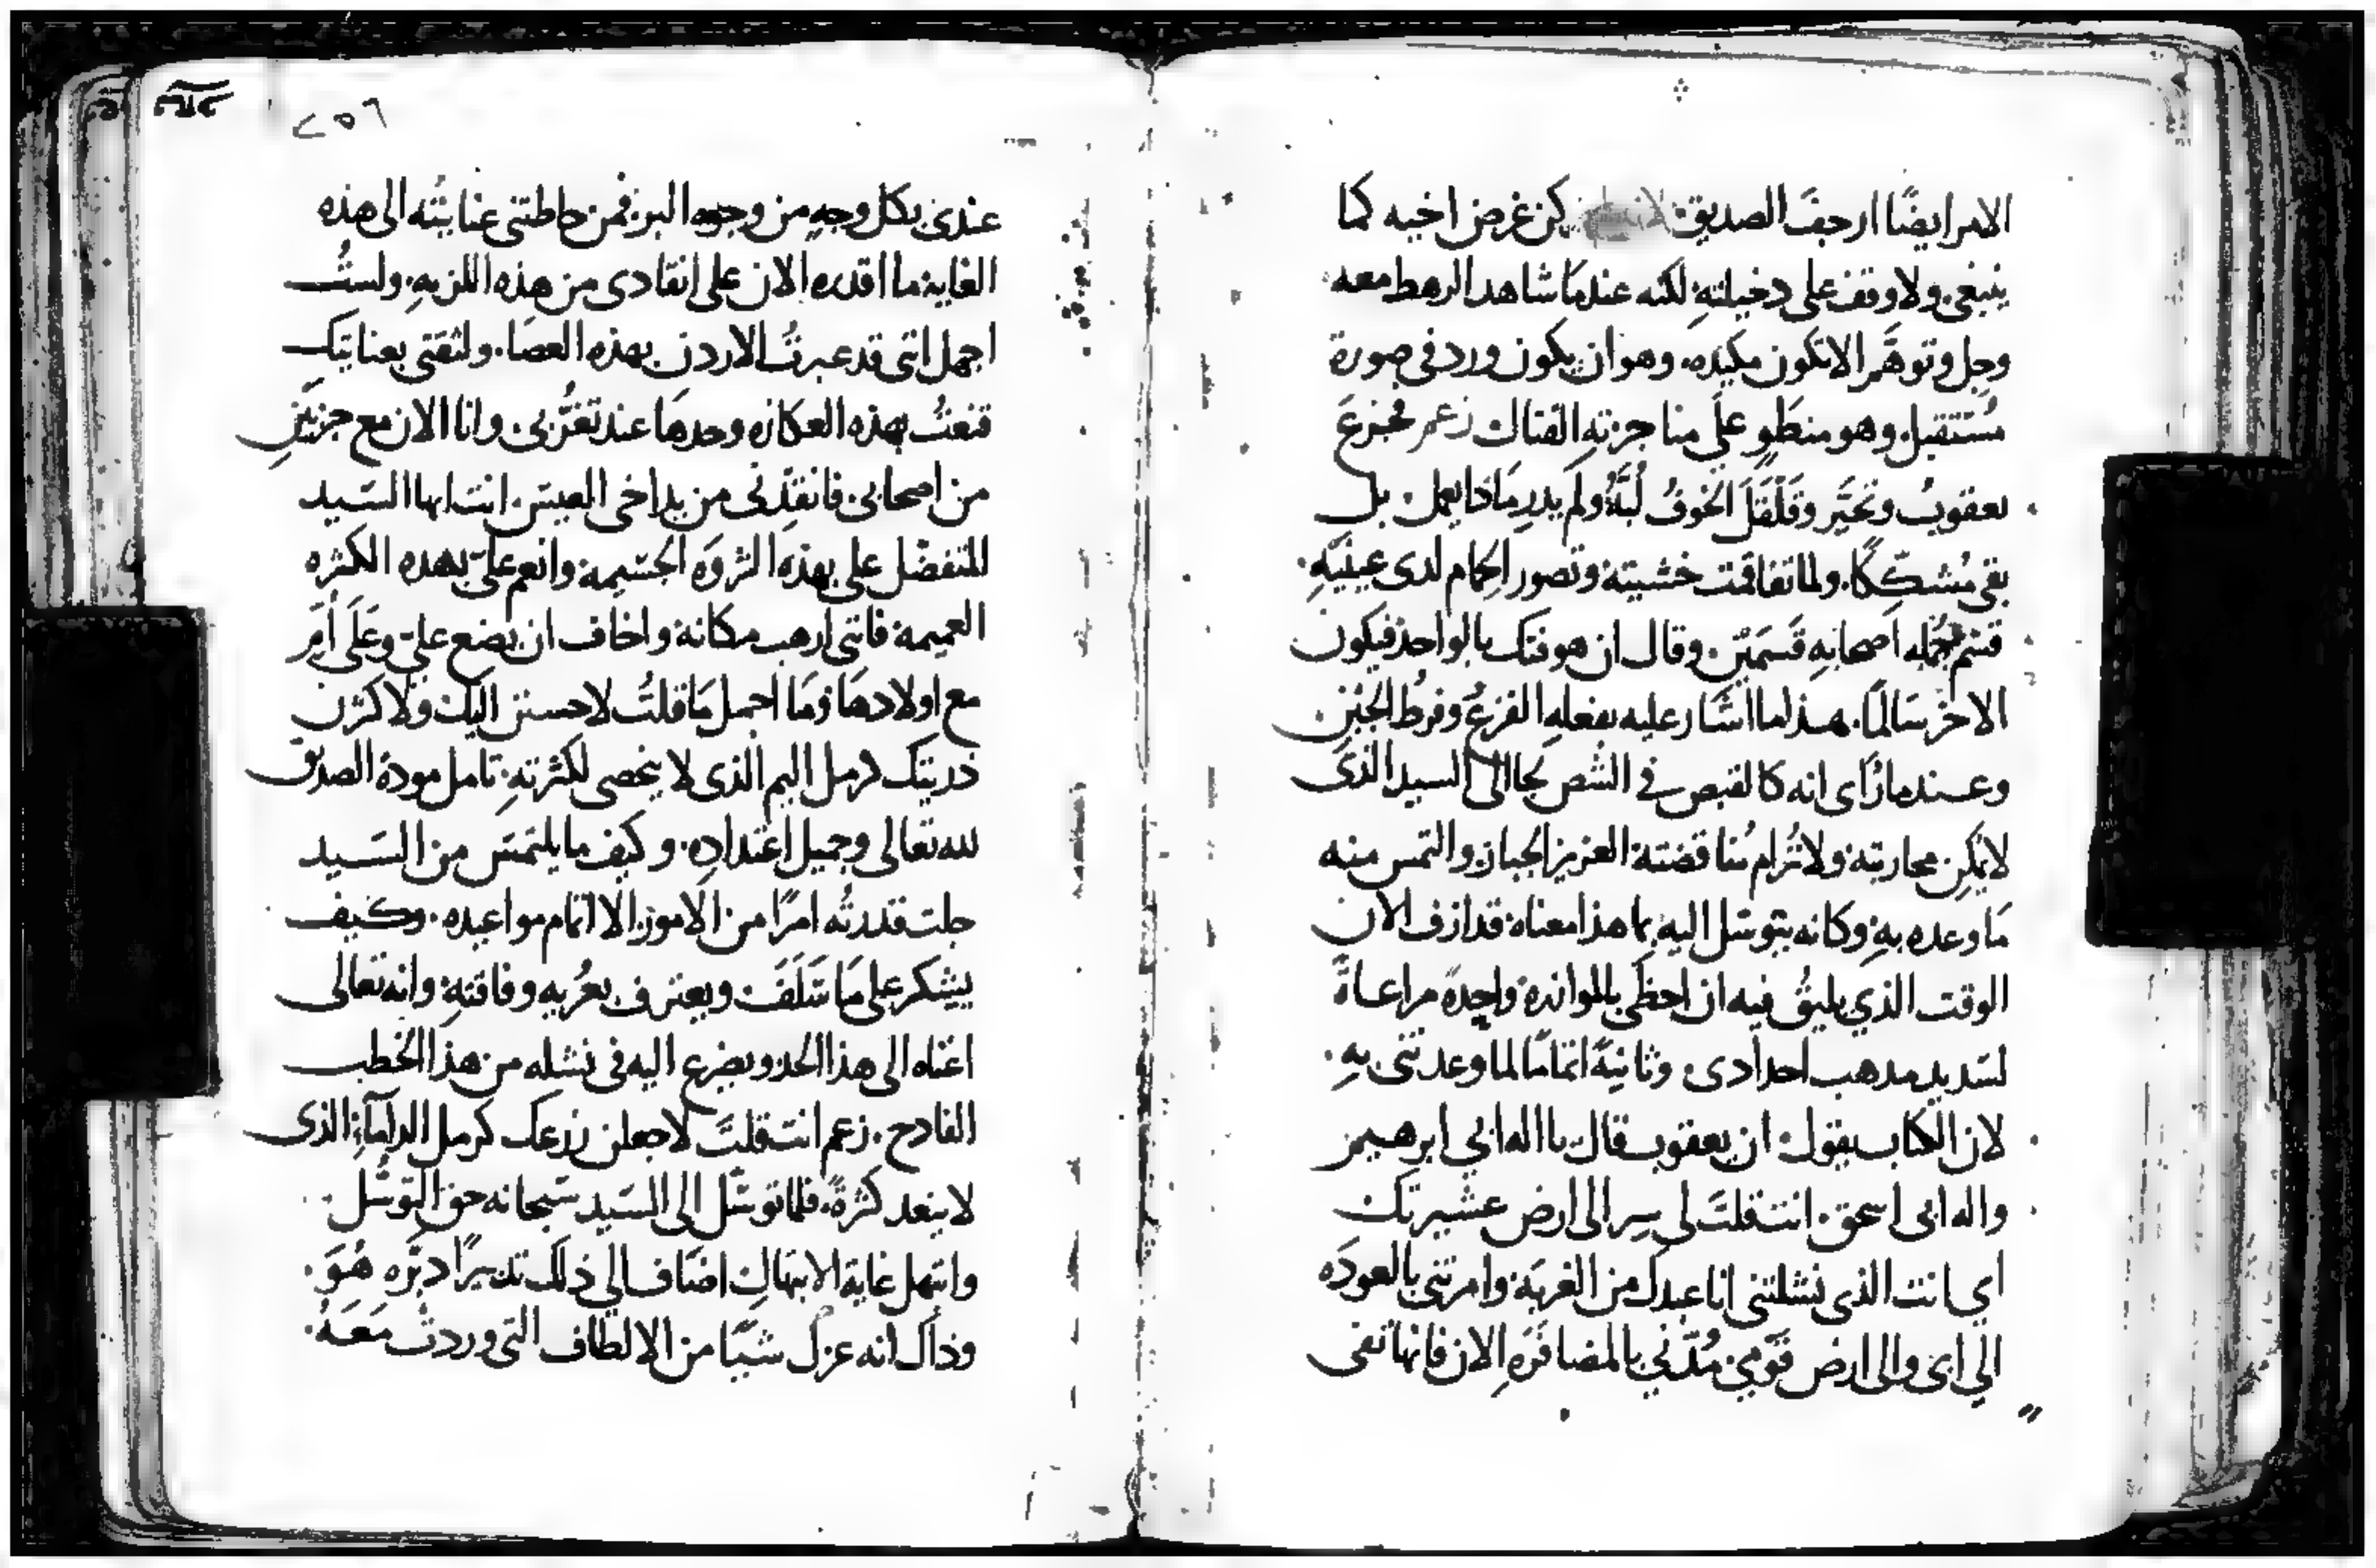 الامر ايضًا ارجف الصديق لانه لم يكن غرض اخيه كما
ينبغي. ولا وقف على دخيلته. لكنه عندما شاهد الرهط معه
وجل وتوهَّم الا تكون مكيده. وهو ان يكون ورد في صورة
مُستقبل. وهو منطَوٍ علَى مناجزته القتال زعم فجزع
يعقوبُ وتحيَّر وقَلْقَلَ الخوفُ لُبَّهُ ولم يدرِ مَاذا يعمل. بل
بقي مُشكِّكًا. ولما تفاقمت خشيته وتصور الحِمام لدى عينيهِ.
قسَم جُمله اصحابهِ قَسَمَيْن. وقال ان هو فتك بالواحد فيكون
الاخر سَالمًا. هذا ما اشَار عليه بفعلهِ الفزعُ وفرطُ الجُبْنِ.
وعندما رَاى انه كالقبص في الشص لجا الى السيد الذي
لا يمكن محاربته ولا تُرام مُناقضته العزيز الجبار. والتمس منه
مَا وعده بهِ. وكانه يتوسَل اليه بما هذا معناه قد ازف الان
الوقت الذي يليقُ فيه ان احظَى بالموازره واحِدهً مراعاةً
لسَديد مذهب اجدادي. وثانيَةً اتمامًا لما وعدتني بهِ.
لان الكتاب يقول ان يعقوب قال يا اله ابي ابرهيم
واله ابي اسحق. انت قلتَ لي سِر الى ارض عشيرتك
اي انت الذي نشلتني انا عبدك من الغربَة وامرتني بالعودَه
الي ابي والى ارض قَوْمي. مُدّني بالمضافَرَهِ الان فانها تفي
٢٥٦
عندي بكل وجهٍ من وجوه البر. فمن حاطتني عنايتُه الى هذه
الغاية ما اقدره الان على انقاذي من هذه اللزبهِ. ولستُ
اجهل انني قد عبرتُ الاردن بهذه العصَا. ولثقتي بعنايتك
قنعتُ بهذه العكازه وحدهَا عند تغرُّبي. وانا الان مع جزئَيْنِ
من اصحابي. فانقِذني من يد اخي العيس. انت ايها السَيد
المتفضْل على بهذه الثروَه الجسَيمة وانعم عليّ بهذه الكثره
العميمة. فانني ارهب مكانة واخاف ان يضع عليّ وعَلَى اُمٍّ
مع اولادهَا. ومَا اجهل مَا قلتُ لاحسنن اليك ولاكثرن
ذريتك كرمل اليم الذي لا يحصى لكثرتهِ. تامل مودة الصديق
لله تعالى وجميل اعتدادِه. وكيف ما يلتمسَ من السَيد
جلت قدرتُه امرًا من الامور. الَّا اتمام مواعيده. وكيف
يشكر على مَا سَلَفَ. ويعترف بعُريه وفاقتهِ وانه تعالى
اغناه الى هذا الحد. ويضرع اليه في نشله من هذا الخطب
الفادح. زعم انت قلتَ لاجعلن زرعك كرمل الدامآءِ الذي
لا يعد كثرةً. فلما توسَّل الى السَيد سَبحانه حق التوسُّل.
وابتهل غاية الابتهالِ اضَاف الى ذلك تدبيرًا دبَّره هُوَ.
وذاك انه عزل شيئًا من الالطاف التي وردتْ مَعَهُ.